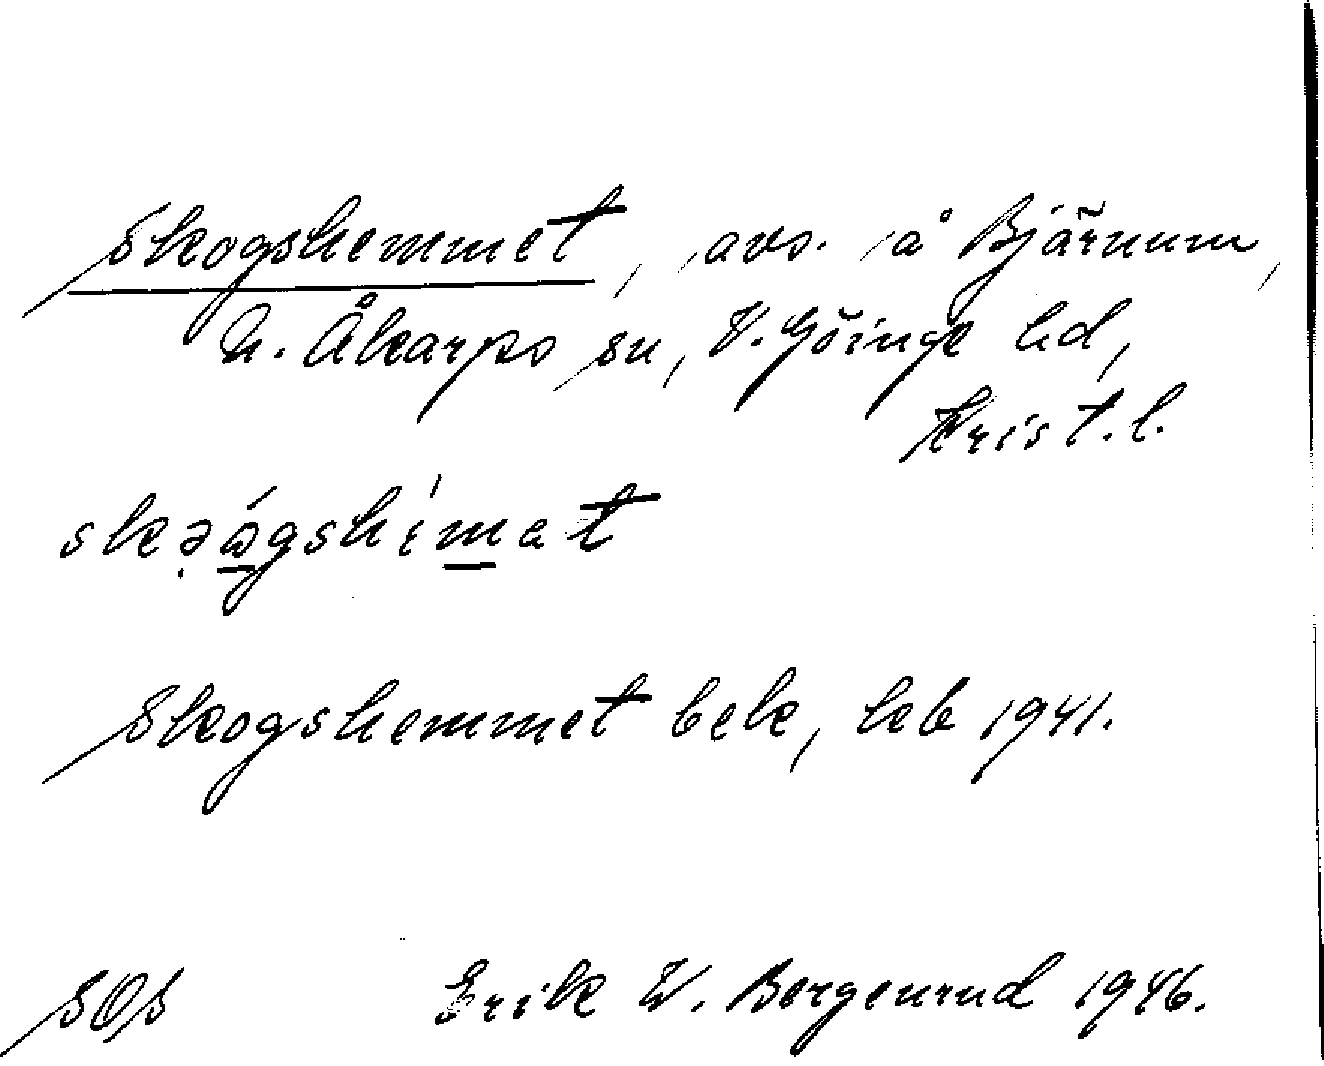 Skogshemmet, avs. å Bjärnum,
N. Åkarps sn, V. Göinge hd,
Krist. l.
skəǻgshémat
Skogshemmet bek, kb 1941.
SOS Erik W. Bergenrud 1946.